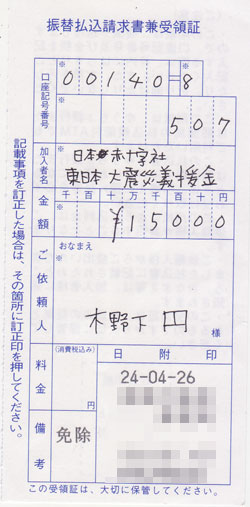 振替払込請求書兼受領証
口座記号番号
※ 00140=8
※ 507
加入者名
※ 日本赤十字社
東日本大震災義援金
金額
千 百 十 万 千 百 十 円
※ ¥15000
ご依頼人
おなまえ
※
木野下 円 様
料金
(消費税込み)
円
日附印
24-04-26
備考
免除
記載事項を訂正した場合は、その箇所に訂正印を押してください。
この受領証は、大切に保管してください。